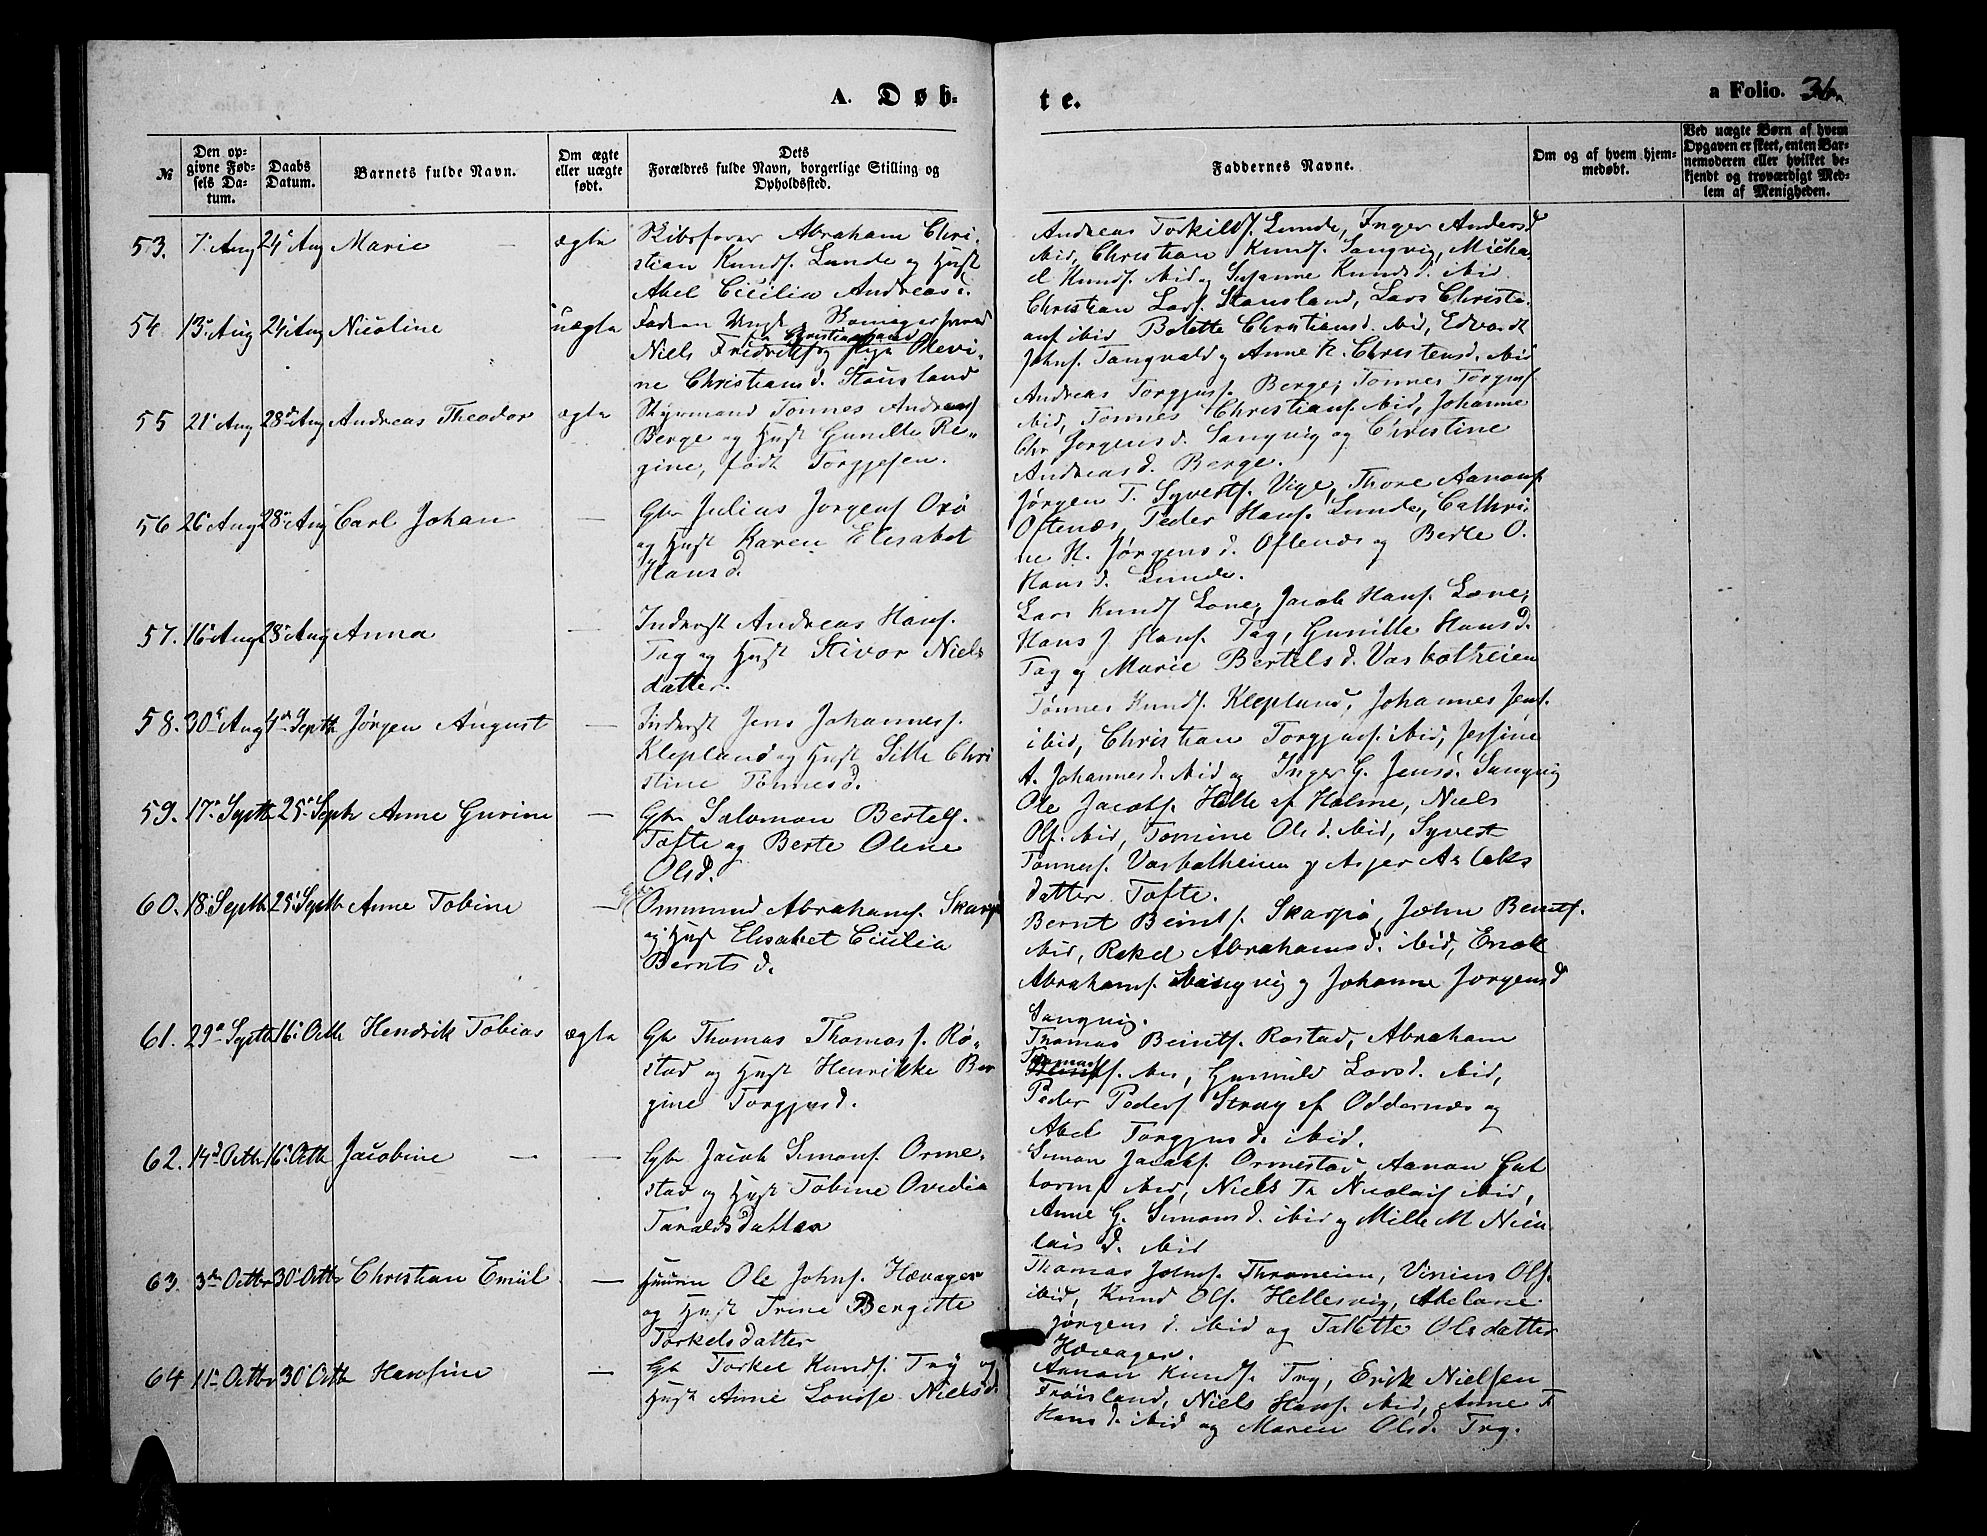 A. Døb-
te.
a Folio. 36.
№
Den op-
givne Fød-
sels Da-
tum.
Daabs
Datum.
Barnets fulde Navn.
Om ægte
eller uægte
født.
Dets
Forældres fulde Navn, borgerlige Stilling og
Opholdssted.
Faddernes Navne.
Om og af hvem hjem-
medøbt.
Ved uægte Børn af hvem
Opgaven er skeet, enten Bar-
nemoderen eller hvilket be-
kjendt og troværdigt Med-
lem af Menigheden.
53. 7 Aug 24 Aug Marie — ægte
Skibsfører Abraham Chri-
stian Knuds. Lunde og Hust
Abel Cicilia Andreasd.
Andreas Torkilds. Lunde, Inger Andersd
ibid, Christian Knuds. Sangvig, Micha-
el Knuds. ibid og Susanne Knudsd. ibid
54 13 Aug 24 Aug Nicoline uægte
Niels Fredriks og Pige Olevi-
Christianssand
ne Christiansd. Stausland
Christian Lars. Stausland, Lars Christi-
ans ibid Bolette Christiansd. ibid, Edvardt
Johns. Tangvald og Anne K. Christensd. ibid
55 21 Aug 28d Aug Andreas Theodor ægte
Styrmand Tønnes Andreas
Berge og Hust Gunille Re-
gine, født Torgjesen.
Andreas Torgjus. Berge, Tønnes Torgjus.
ibid, Tønnes Christians. ibid, Johanne
Chr. Jørgensd. Sangvig og Christine
Andreasd. Berge.
56 26 Aug 28 Aug Carl Johan —
Gbr Julius Jørgens Oxø
og Hust Karen Elisabet
Hansd.
Jørgen T. Syverts. Vige, Thore Aanons.
Oftenæs, Peder Hans. Lunde, Cathri-
ne K. Jørgensd. Oftenæs og Berte O.
Hansd. Lunde.
57. 16 Aug 28 Aug Anna —
Inderst Andreas Hans.
Tag og Hust Sivor Niels
datter.
Lars Knuds Lone, Jacob Hans. Lone,
Hans J Hans. Tag, Gunille Hansd.
Tag og Marie Bertelsd. Vasbotheien
58. 30 Aug 4de Septb Jørgen August —
Inderst Jens Johanness.
Klepland og Hust Sille Chri
stine Tønnesd.
Tønnes Knuds. Klepland, Johannes Jens.
ibid, Christian Torgjus. ibid, Jessine
A. Johannesd. ibid og Inger G. Jensd. Sangvig
59. 17 Septb 25 Septb Anne Gurine —
Gbr Salomon Bertels.
Tofte og Berte Olene
Olsd.
Ole Jacobs. Helle af Holme, Niels
Ols. ibid, Tomine Olsd. ibid, Syvert
Tønness. Vasbotheien og Asjer Aslaks
datter Tofte.
60. 18 Septb 25 Septb Anne Tobine —
Ommund Abrahams. Skarpø
og Hust Elisabet Cicilia
Berntsd.
Bernt Beints. Skarpø, John Bernts.
ibid, Rakel Abrahamsd. ibid, Enok
Abrahams. Sangvig og Johanne Jørgensd
Sangvig.
61. 29de Septb 16 Octb Hendrik Tobias ægte
Gbr Thomas Thomass. Rø-
stad og Hust Henrikke Ber
gine Torgjusd.
Thomas Beints. Røstad, Abraham
Thomass. ibid, Gunnild Larsd. ibid,
Peder Peders. Stray af Oddernæs og
Abel Torgjusd. ibid.
62. 14d Octb 16 Octb Jacobine — —
Gbr Jacob Simons. Orme-
stad og Hust Tobine Ovedia
Taraldsdatter
Simon Jacobs. Ormestad, Aanon Gut
torms ibid, Niels Th Nicolais ibid,
Anne G. Simonsd. ibid og Mille M Nico
laisd. ibid
63. 3de Octbr 30 Octbr Christian Emiil —
Ole Johns. Hævager
og Hust Trine Bergitte
Torkelsdatter
Thomas Johns. Throneim, Vinius Ols.
ibid, Knud Ols. Hellesvig, Abelone
Jørgensd. ibid og Tallette Olsdatter
Hævager.
64 11 Octbr 30 Octb Hansine —
Gbr Torkel Knuds. Try og
Hust Anne Lovise Nielsd.
Aanon Knuds. Try, Erik Nielsen
Frøisland, Niels Hans. ibid, Anne T
Hansd. ibid og Maren Olsd. Try.